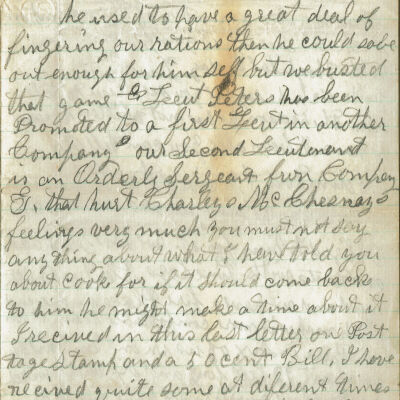 he used to have a great deal of
fingering our rations then he could save
out enough for him self but we busted
that game Lieut Peters has been
Promoted to a first Lieut in another
Company our Second Lieutenant
is an Orderly Sergeant from Company
G, that hurt Charleys McChesnays
feelings very much you must not say
any thing about what I have told you
about cook for if it should come back
to him he might make a time about it
I recived in this last letter on Post
tage stamp and a 50 cent Bill, I have
recived quite some at diferent times